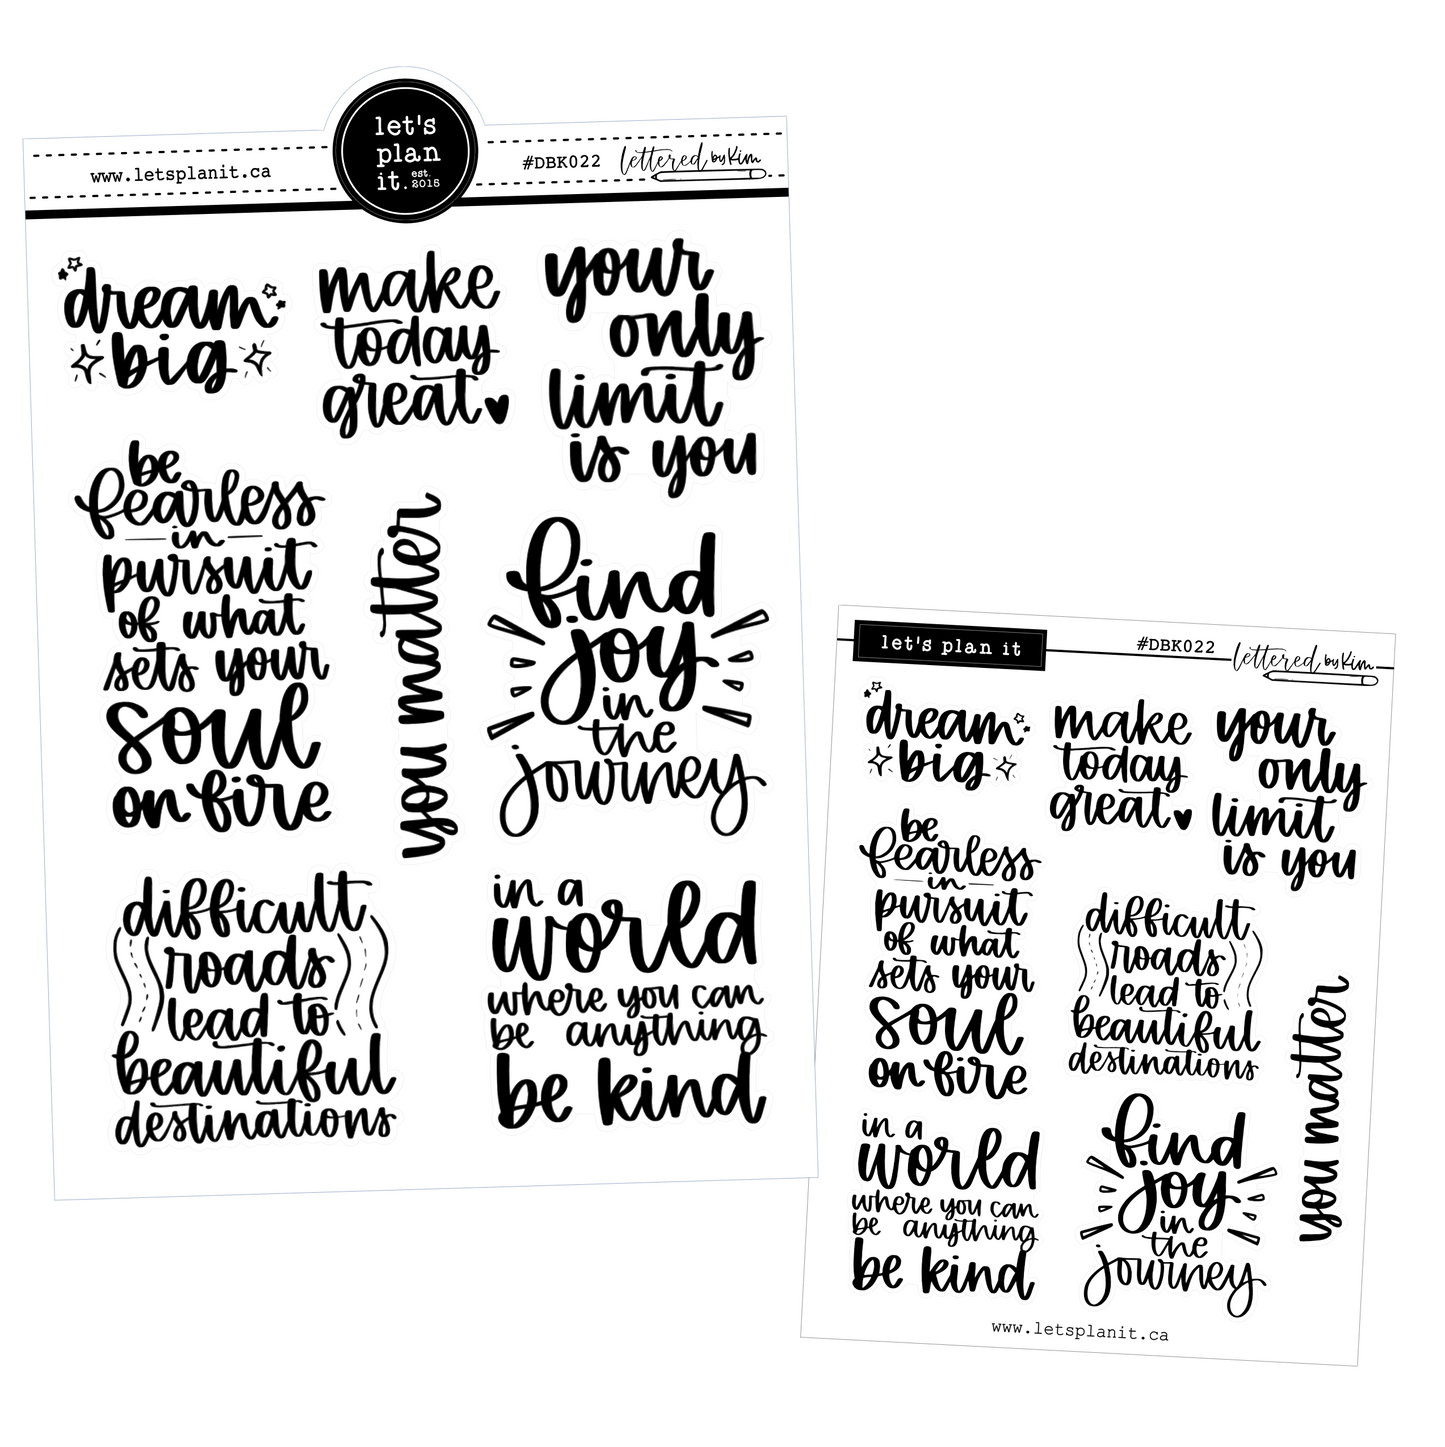 let's
plan
it. est. 2015
www.letsplanit.ca
#DBK022
lettered by Kim
dream
big
make
today
great
your
only
limit
is you
be
fearless
in
pursuit
of what
sets your
soul
on fire
you matter
find
joy
in
the
journey
difficult
roads
lead to
beautiful
destinations
in a
world
where you can
be anything
be kind
let's plan it
#DBK022
lettered by Kim
dream
big
make
today
great
your
only
limit
is you
be
fearless
in
pursuit
of what
sets your
soul
on fire
difficult
roads
lead to
beautiful
destinations
you matter
in a
world
where you can
be anything
be kind
find
joy
in
the
journey
www.letsplanit.ca